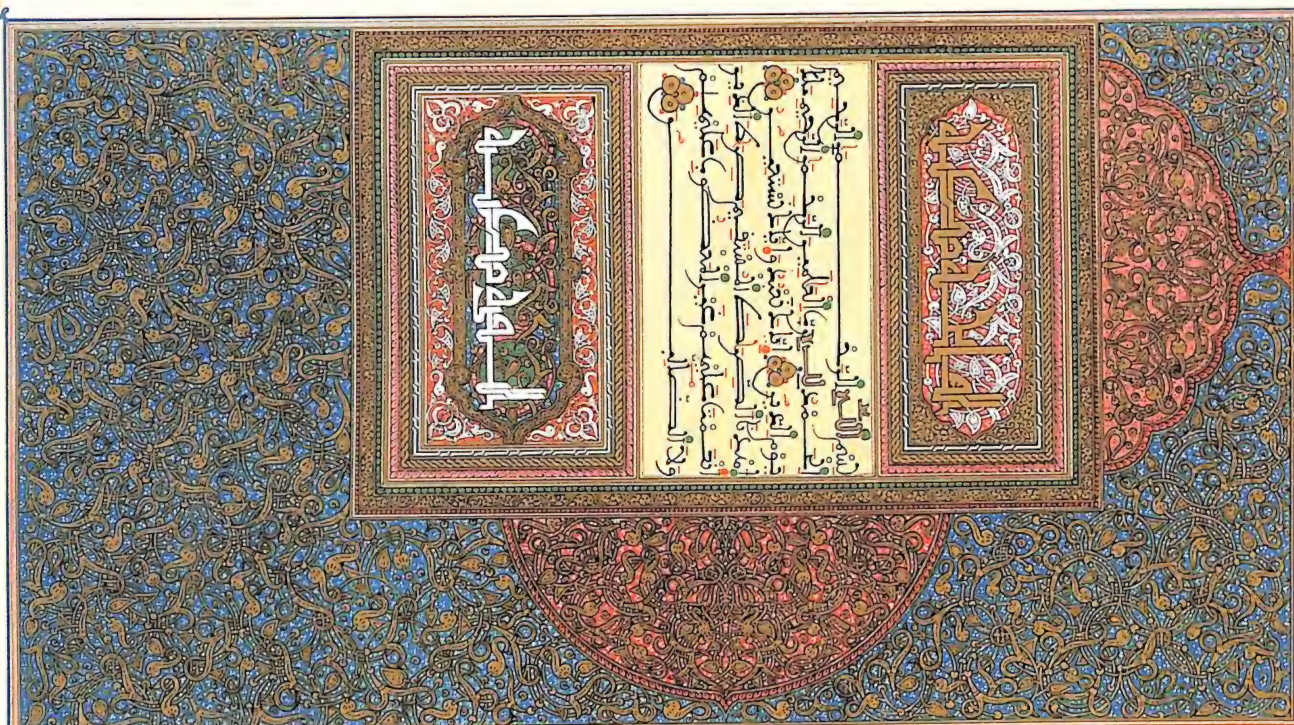 بسم الله الرحمن الرحيم
الحمد لله رب العالمين الرحمن الرحيم ملك
يوم الدين إياك نعبد وإياك نستعين
اهدنا الصراط المستقيم صراط الذين
أنعمت عليهم غير المغضوب عليهم
ولا الضالين